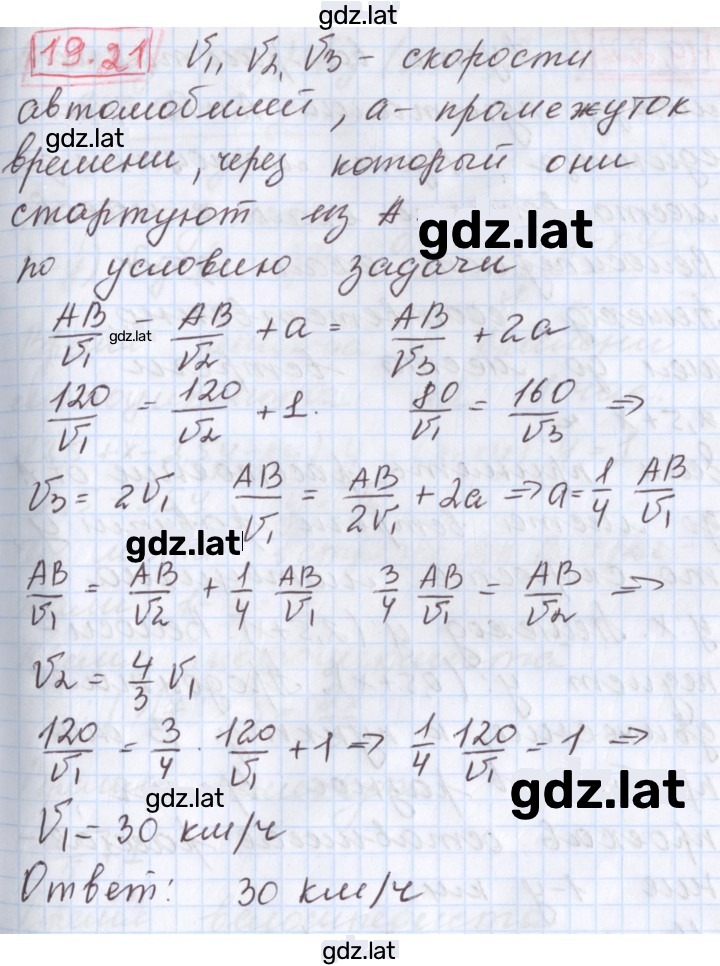 gdz.lat
19.21 V₁, V₂, V₃ - скорости
автомобилей, a - промежуток
gdz.lat
времени, через который они
стартуют из A.
gdz.lat
по условию задачи
AB/V₁ = AB/V₂ + a = AB/V₃ + 2a
gdz.lat
120/V₁ = 120/V₂ + 1. 80/V₁ = 160/V₃ ⇒
V₃ = 2V₁ AB/V₁ = AB/2V₁ + 2a ⇒ a = 1/4 AB/V₁
gdz.lat
AB/V₁ = AB/V₂ + 1/4 AB/V₁ 3/4 AB/V₁ = AB/V₂ ⇒
V₂ = 4/3 V₁
120/V₁ = 3/4 · 120/V₁ + 1 ⇒ 1/4 120/V₁ = 1 ⇒
gdz.lat
gdz.lat
V₁ = 30 км/ч
Ответ: 30 км/ч
gdz.lat